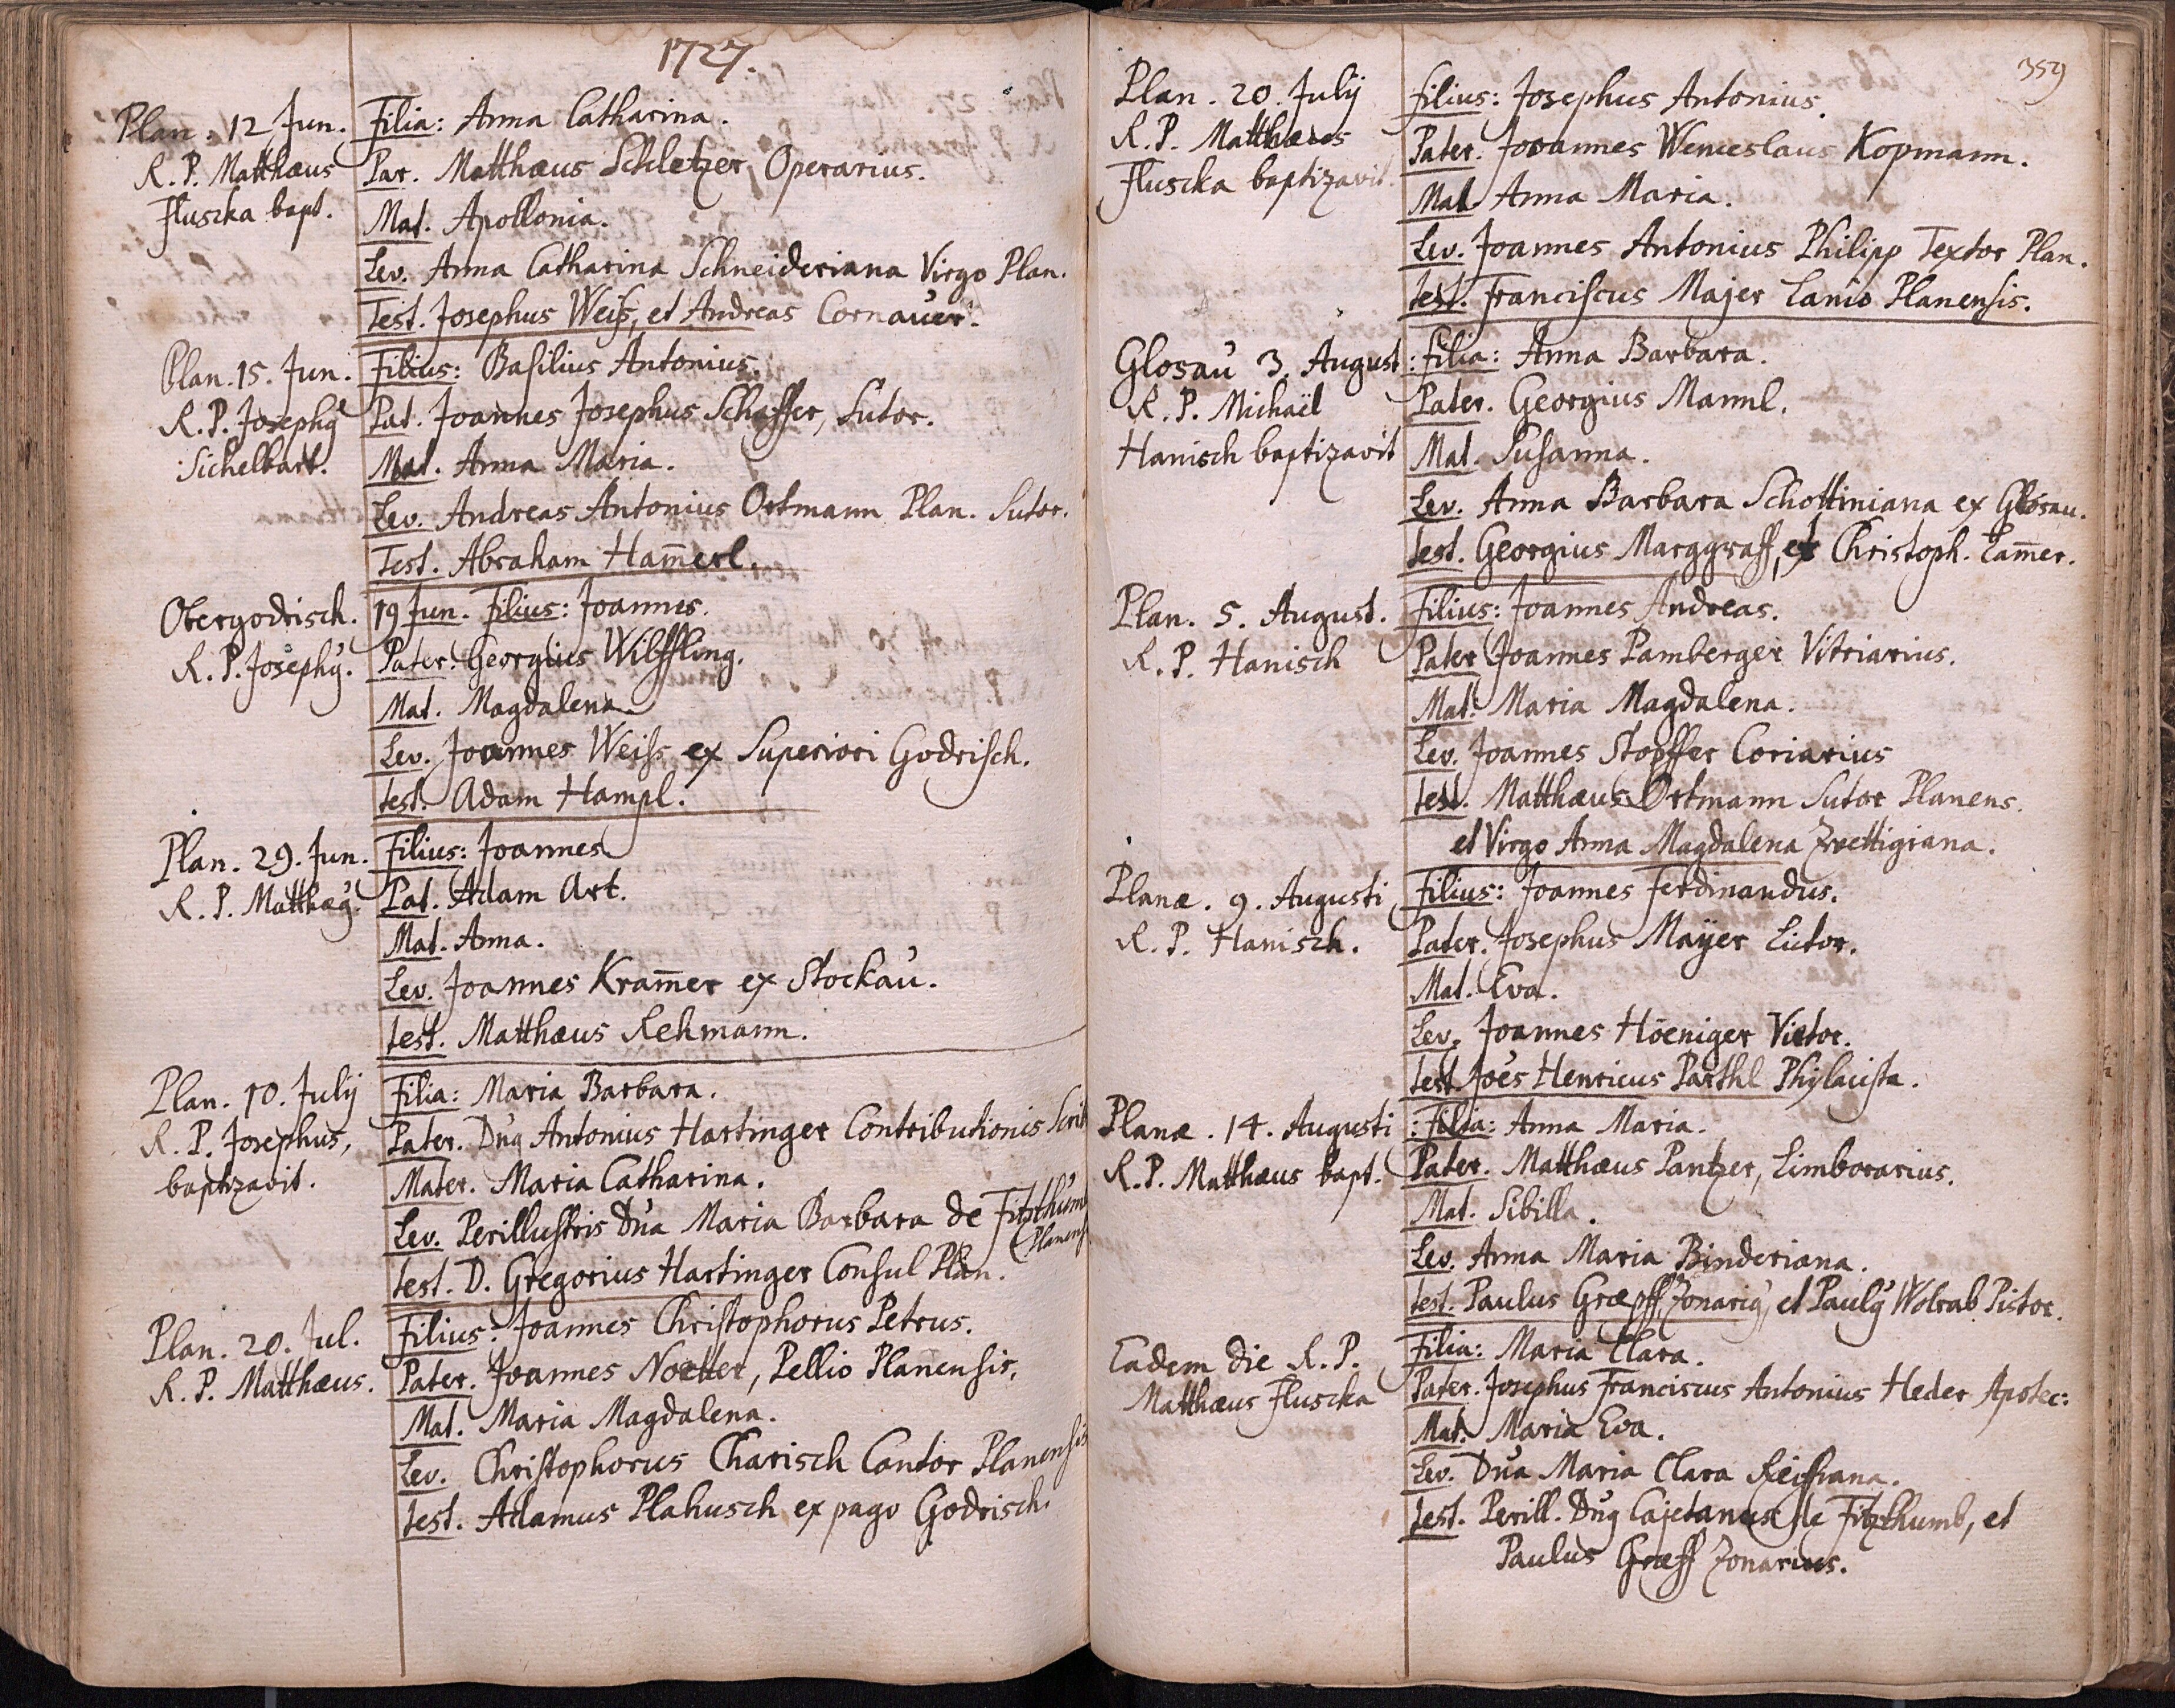 1727.
Plan. 12 Jun.
R. P. Matthæus
Fluscka bapt.
Filia: Anna Catharina.
Par. Matthæus Schletzer Operarius.
Mat. Apollonia.
Lev. Anna Catharina Schneideriana Virgo Plan.
Test. Josephus Weiß, et Andreas Cornauer.
Plan. 15. Jun.
R. P. Josephg
Sichelbart.
Filius: Basilius Antonius.
Pat. Joannes Josephus Schaffer, Sutor.
Mat. Anna Maria.
Lev. Andreas Antonius Ortmann Plan. Sutor.
Test. Abraham Ham̄erl.
Obergodrisch.
R. P. Josephg.
19 Jun. Filius: Joannes.
Pater. Georgius Wilffling.
Mat. Magdalena.
Lev. Joannes Weiss ex Superiori Godrisch.
test. Adam Hampl.
Plan. 29. Jun.
R. P. Matthæg.
Filius: Joannes
Pat. Adam Art.
Mat. Anna.
Lev. Joannes Kram̄er ex Stockau.
test. Matthæus Rehmann.
Plan. 10. Julij
R. P. Josephus,
baptizavit.
Filia: Maria Barbara.
Pater. Dn̄g Antonius Hartinger Contributionis Scrib
Mater. Maria Catharina.
Lev. Perillustris Dn̄a Maria Barbara de Fitzthum
Planens
test. D. Gregorius Hartinger Consul Plan.
Plan. 20. Jul.
R. P. Matthæus.
Filius: Joannes Christophorus Petrus.
Pater. Joannes Noetter, Pellio Planensis.
Mat. Maria Magdalena.
Lev. Christophorus Charisch Cantor Planensis
test. Adamus Plahusch ex pago Godrisch.
359
Plan. 20. Julij
R. P. Matthæus
Fluscka baptizavit.
filius: Josephus Antonius.
Pater. Joannes Wenceslaus Kopmann.
Mat. Anna Maria.
Lev. Joannes Antonius Philipp Textor Plan.
test. Franciscus Majer Lanio Planensis.
Glosau 3. August
R. P. Michaël
Hanisch baptizavit
: filia: Anna Barbara.
Pater. Georgius Mannl.
Mat. Susanna.
Lev. Anna Barbara Schottiniana ex Glosau.
test. Georgius Marggraff, et Christoph. Lam̄er.
Plan. 5. August.
R. P. Hanisch
Filius: Joannes Andreas.
Pater Joannes Pamberger Vitriarius.
Mat. Maria Magdalena.
Lev. Joannes Stopffer Coriarius
test. Matthæus Ortmann Sutor Planens.
et Virgo Anna Magdalena Zwettigiana.
Planæ. 9. Augusti
R. P. Hanisch.
Filius: Joannes Ferdinandus.
Pater. Josephus Maÿer Lictor.
Mat. Eva.
Lev. Joannes Höeniger Vietor.
test. Joēs Henricus Parthl Phylacista.
Planæ. 14. Augusti
R. P. Matthæus bapt.
: Filia: Anna Maria.
Pater. Matthæus Pantzer, Limborarius.
Mat. Sibilla.
Lev. Anna Maria Binderiana.
test. Paulus Græff Zonarig, et Paulg Wolrab Pistor.
Eadem die R. P.
Matthæus Fluscka
Filia: Maria Clara.
Pater. Josephus Franciscus Antonius Heder Apotec:
Mat. Maria Eva.
Lev. Dn̄a Maria Clara Reissiana.
test. Perill. Dn̄g Cajetanus de Fitzthumb, et
Paulus Græff Zonarius.